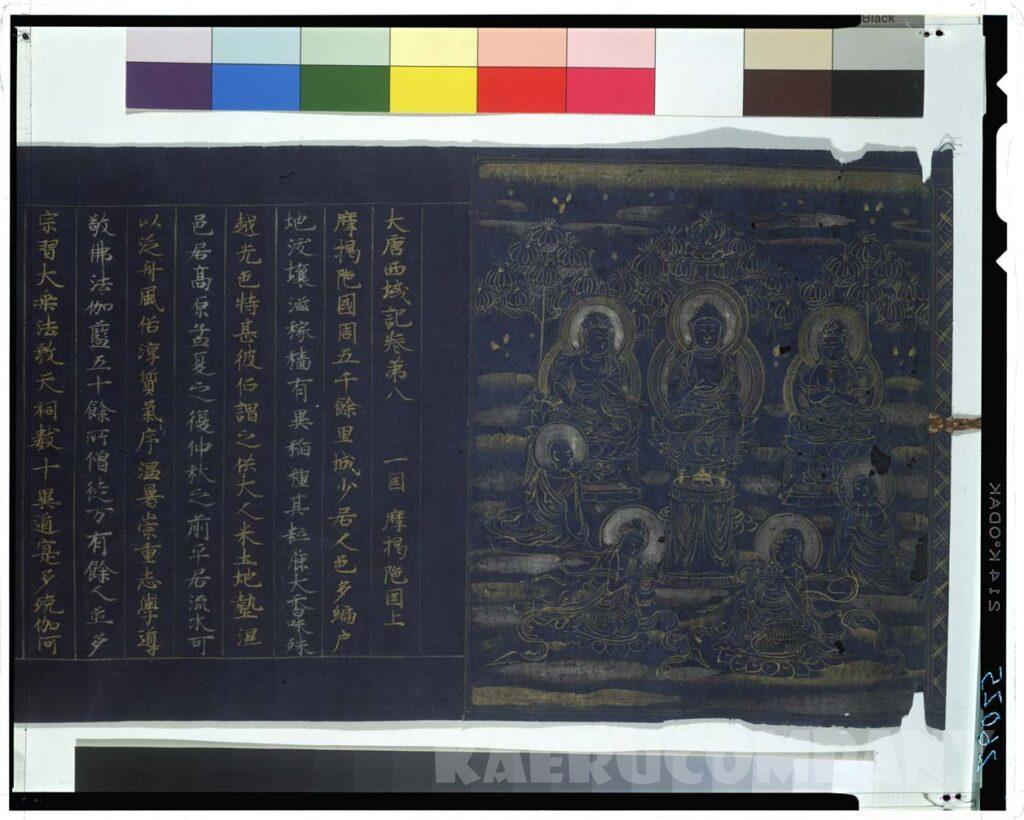 Black
大唐西域記卷第八 一国 摩掲陁国上
摩掲陁國周五千餘里城少居人邑多編户
地沃壤滋稼穡有異稻種其粒麁大香味殊
越光色特甚彼俗謂之供大人米土地墊濕
邑居髙原孟夏之後仲秋之前平居流水可
以泛舟風俗淳質氣序温暑崇重志學尊
敬佛法伽藍五十餘所僧徒万有餘人並多
宗習大乗法教天祠數十異道寔多殑伽河
KODAK
KAERUCOMPANY